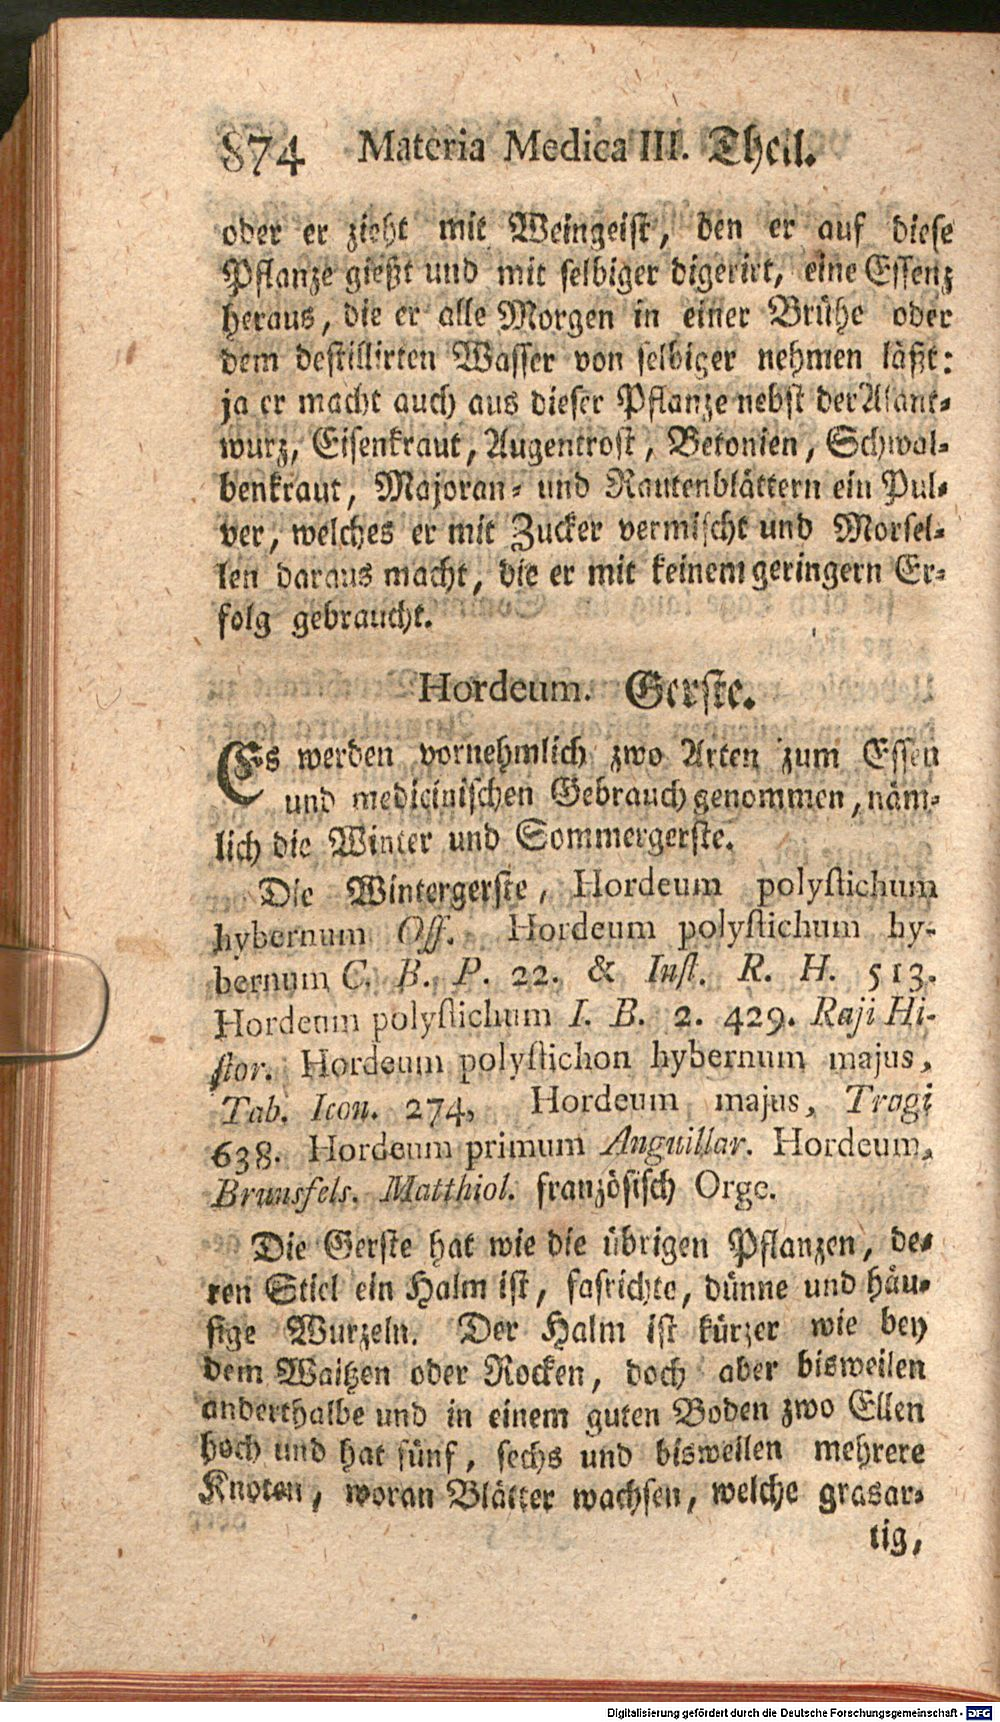 874 Materia Medica III. Theil.
oder er zieht mit Weingeist, den er auf diese
Pflanze gießt und mit selbiger digerirt, eine Essenz
heraus, die er alle Morgen in einer Brühe oder
dem destillirten Wasser von selbiger nehmen läßt:
ja er macht auch aus dieser Pflanze nebst der Alant-
wurz, Eisenkraut, Augentrost, Betonien, Schwal-
benkraut, Majoran- und Rautenblättern ein Pul-
ver, welches er mit Zucker vermischt und Morsel-
len daraus macht, die er mit keinem geringern Er-
folg gebraucht.
Hordeum. Gerste.
Es werden vornehmlich zwo Arten zum Essen
und medicinischen Gebrauch genommen, näm-
lich die Winter und Sommergerste.
Die Wintergerste, Hordeum polystichum
hybernum Off. Hordeum polystichum hy-
bernum C. B. P. 22. & Inst. R. H. 513.
Hordeum polystichum I. B. 2. 429. Raji Hi-
stor. Hordeum polystichon hybernum majus,
Tab. Icon. 274, Hordeum majus, Tragi
638. Hordeum primum Anguillar. Hordeum,
Brunsfels. Matthiol. französisch Orge.
Die Gerste hat wie die übrigen Pflanzen, de-
ren Stiel ein Halm ist, fasrichte, dünne und häu-
fige Wurzeln. Der Halm ist kürzer wie bey
dem Waitzen oder Rocken, doch aber bisweilen
anderthalbe und in einem guten Boden zwo Ellen
hoch und hat fünf, sechs und bisweilen mehrere
Knoten, woran Blätter wachsen, welche grasar-
tig,
Digitalisierung gefördert durch die Deutsche Forschungsgemeinschaft - DFG